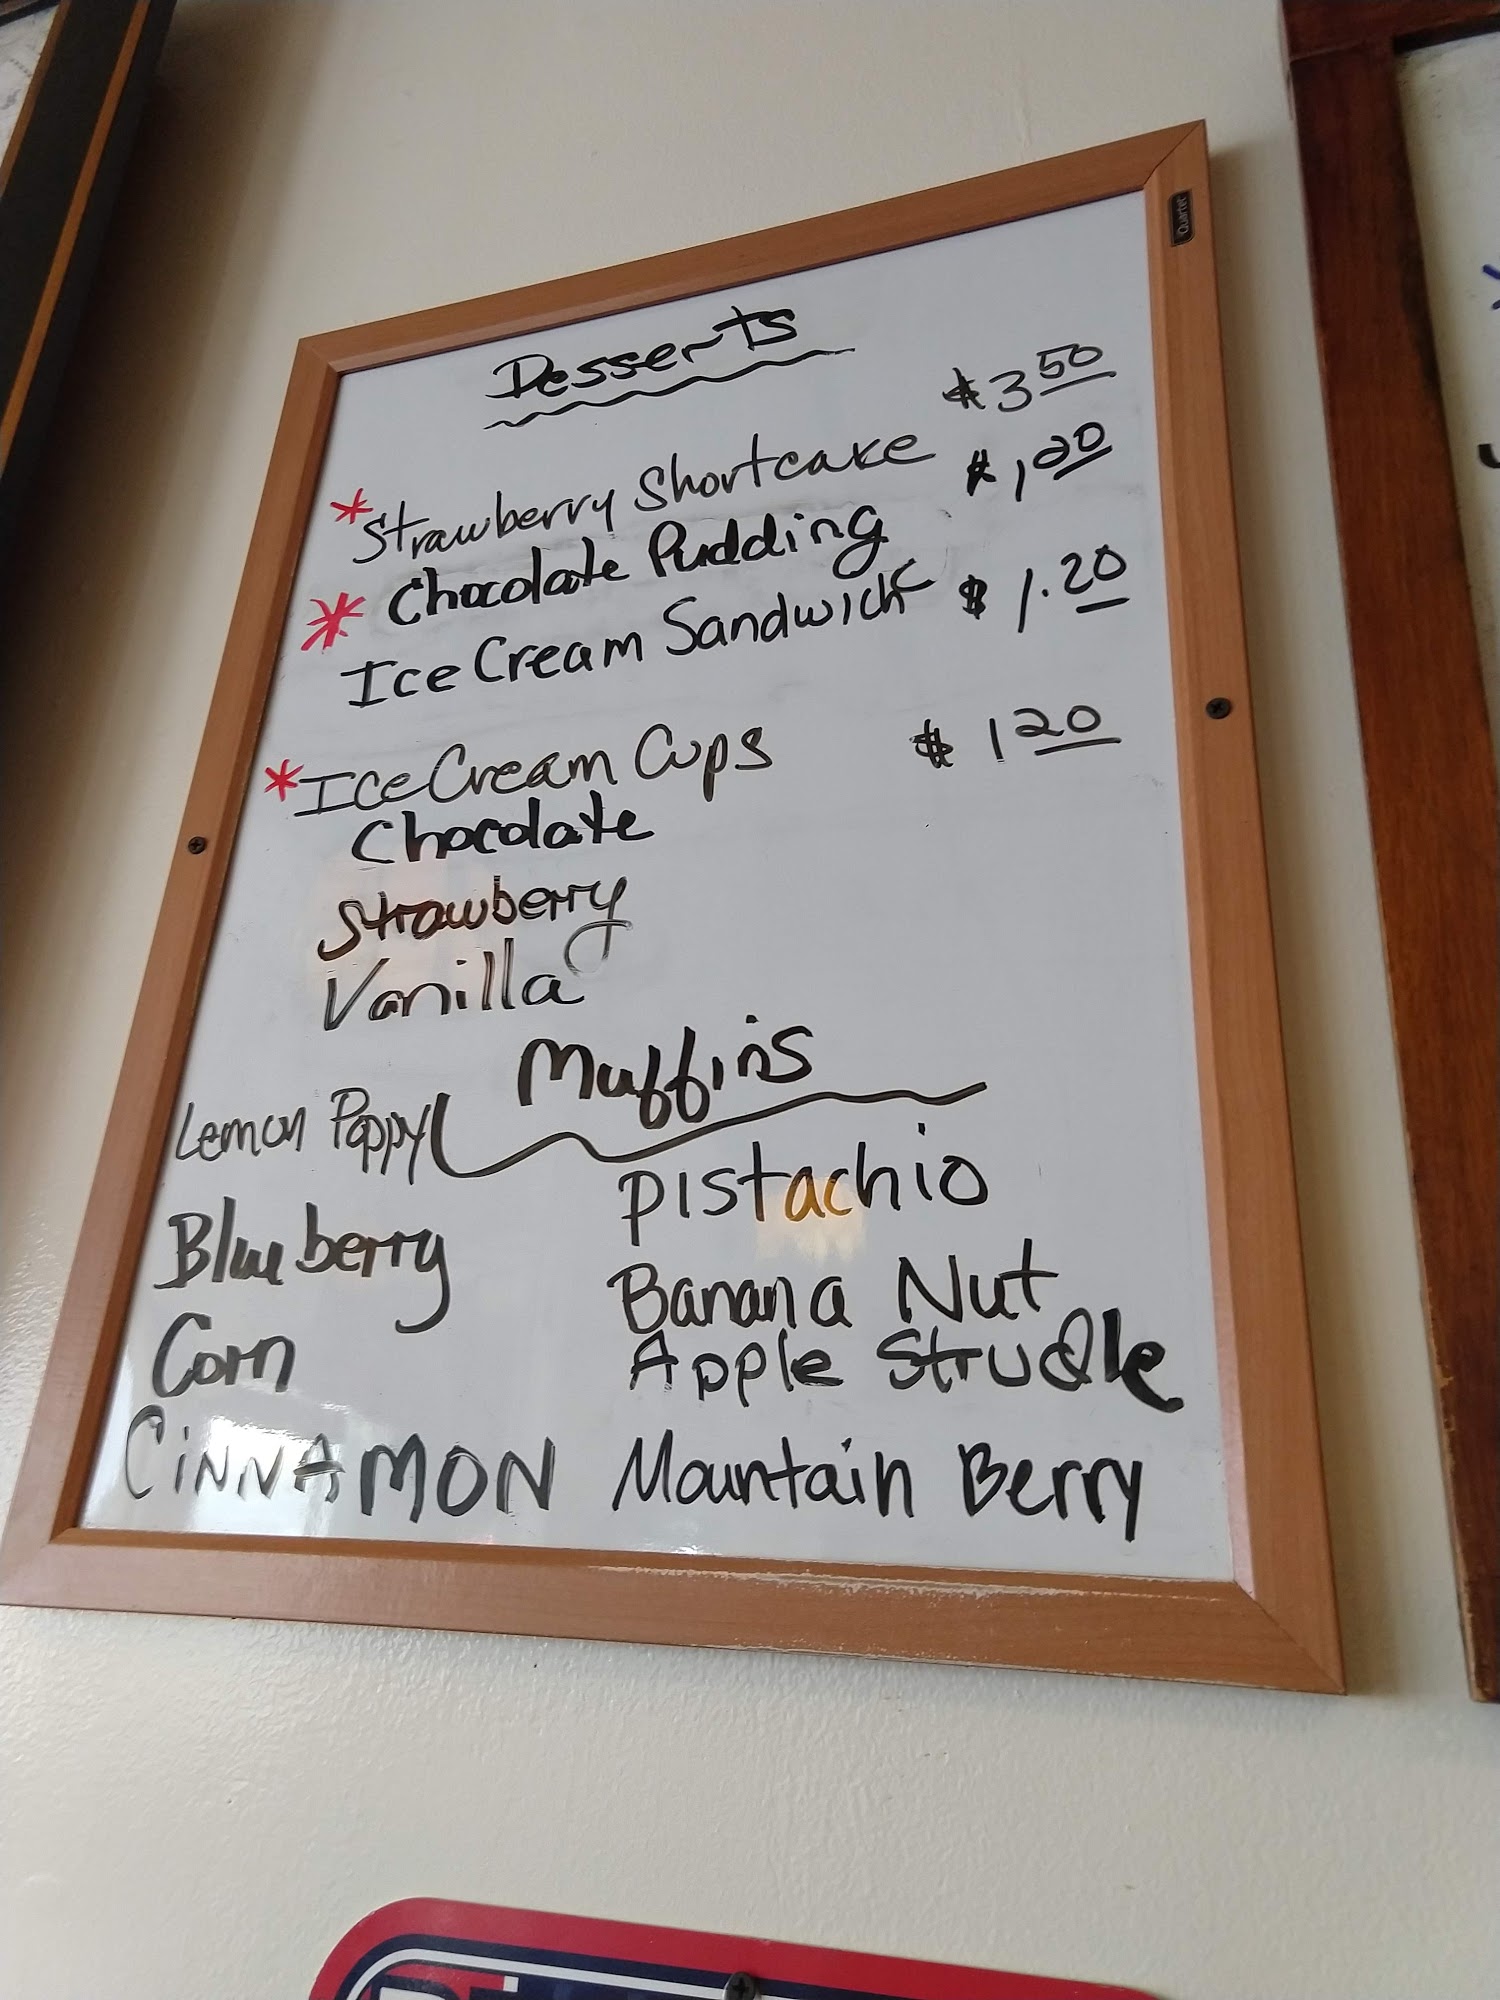 Quartet
Desserts
*Strawberry Shortcake $3.50
* Chocolate Pudding $1.20
Ice Cream Sandwich $1.20
*Ice Cream Cups $1 20
Chocolate
Strawberry
Vanilla
Muffins
Lemon Poppy
Blueberry
Corn
CiNNAMON
Pistachio
Banana Nut
Apple Strudle
Mountain Berry